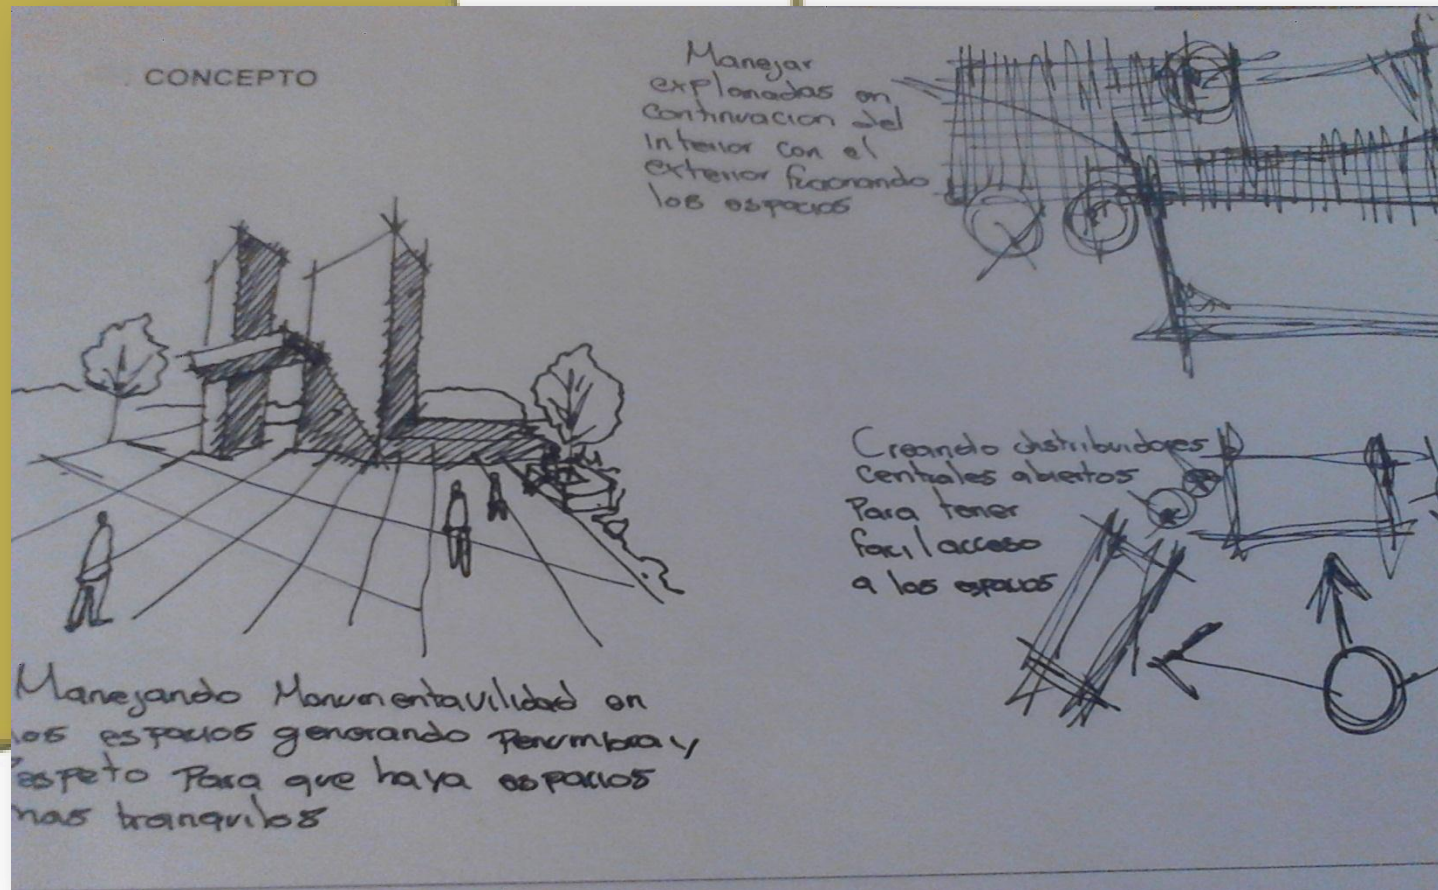 CONCEPTO
Manejar
explanadas en
continuacion del
interior con el
exterior fucionando
los espacios
Creando distribuidores
centrales abiertos
Para tener
facil acceso
a los espacios
Manejando Monumentavilidad en
los espacios generando Penumbra y
respeto Para que haya espacios
mas tranquilos